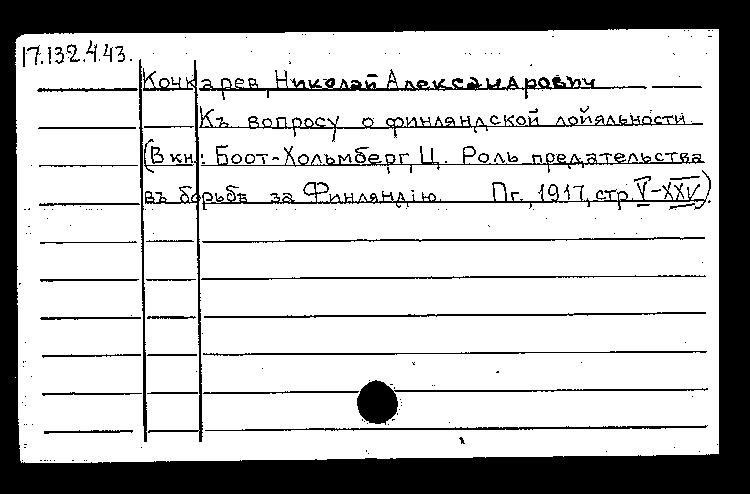 17.132.4.43.
Кочкарев, Николай Александрович
Къ вопросу о финляндской лойяльности
(В кн.: Боот-Хольмберг, Ц. Роль предательства
въ борьбѣ за Финляндію. Пг., 1917, стр. V-XXV).